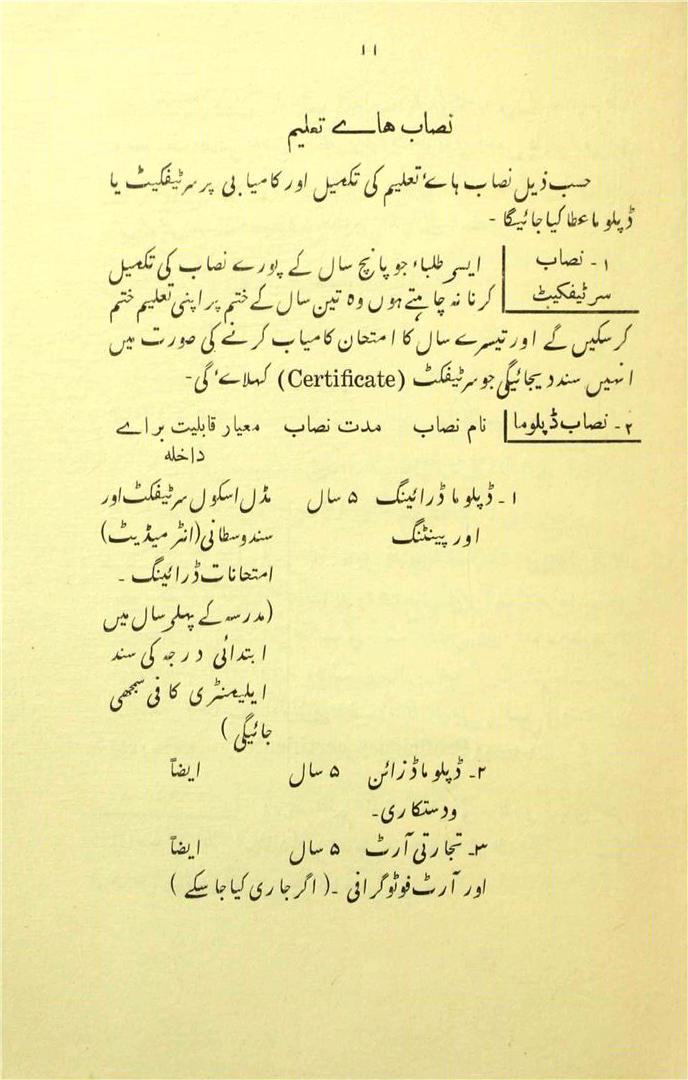 ۱۱
نصاب ہاے تعلیم
حسب ذیل نصاب ہاۓ تعلیم کی تکمیل اور کامیابی پر سرٹیفکیٹ یا
ڈپلوما عطا کیا جائیگا -
۱ - نصاب
سرٹیفکیٹ
ایسے طلباء جو پانچ سال کے پورے نصاب کی تکمیل
کرنا نہ چاہتے ہوں وہ تین سال کے ختم پر اپنی تعلیم ختم
کر سکیں گے اور تیسرے سال کا امتحان کامیاب کرنے کی صورت میں
انہیں سند دیجائیگی جو سرٹیفکٹ (Certificate) کہلاۓ گی -
۲ - نصاب ڈپلوما نام نصاب مدت نصاب معیار قابلیت براے
داخلہ
۱ - ڈپلوما ڈرائینگ ۵ سال مڈل اسکول سرٹیفکٹ اور
اور پینٹنگ سندوسطانی (انٹر میڈیٹ)
امتحانات ڈرائینگ -
(مدرسہ کے پہلے سال میں
ابتدائی درجہ کی سند
ایلیمنٹری کافی سمجھی
جائیگی)
۲ - ڈپلوما ڈزائن ۵ سال ایضاً
ودستکاری -
۳ - تجارتی آرٹ ۵ سال ایضاً
اور آرٹ فوٹوگرافی - (اگر جاری کیا جا سکے)